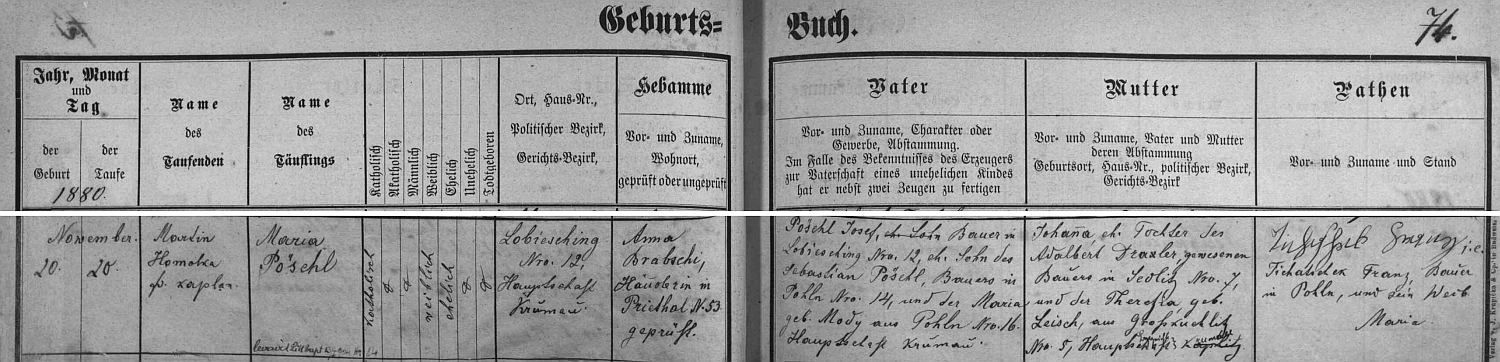 Geburts=
Buch.
74.
Jahr, Monat
und
Tag
der
Geburt
der
Taufe
1880.
Name
des
Taufenden
Name
des
Täuflings
Katholisch
Akatholisch
Männlich
Weiblich
Ehelich
Unehelich
Todtgeboren
Ort, Haus-Nr.,
Politischer Bezirk,
Gerichts-Bezirk,
Hebamme
Vor- und Zuname,
Wohnort,
geprüft oder ungeprüft
Vater
Vor- und Zuname, Charakter oder
Gewerbe, Abstammung.
Im Falle des Bekenntnisses des Erzeugers
zur Vaterschaft eines unehelichen Kindes
hat er nebst zwei Zeugen zu fertigen
Mutter
Vor- und Zuname, Vater und Mutter
deren Abstammung
Geburtsort, Haus-Nr., politischer Bezirk,
Gerichts-Bezirk
Pathen
Vor- und Zuname und Stand
November.
20. 20.
Martin
Homolka
Kaplan.
Maria
Pöschl
katholisch
weiblich
ehelich
Lobiesching
Nro. 12,
Hauptschaft
Krumau.
Anna
Brabschi,
Häuslerin in
Priethal N. 53
geprüft.
Pöschl Josef, eh. Sohn Bauer in
Lobiesching Nro. 12, eh. Sohn des
Sebastian Pöschl, Bauers in
Pohln Nro. 14, und der Maria
geb. Mody aus Pohln Nro. 16.
Hauptschaft Krumau.
Johanna eh. Tochter des
Adalbert Draxler, gewesenen
Bauers in Sedlitz Nro. 7,
und der Theresia geb.
Leisch, aus Großzuchlitz
Nro. 5, Hauptschaft Kaplitz
i. e.
Tichatschek Franz Bauer
in Pohln, und sein Weib
Maria.